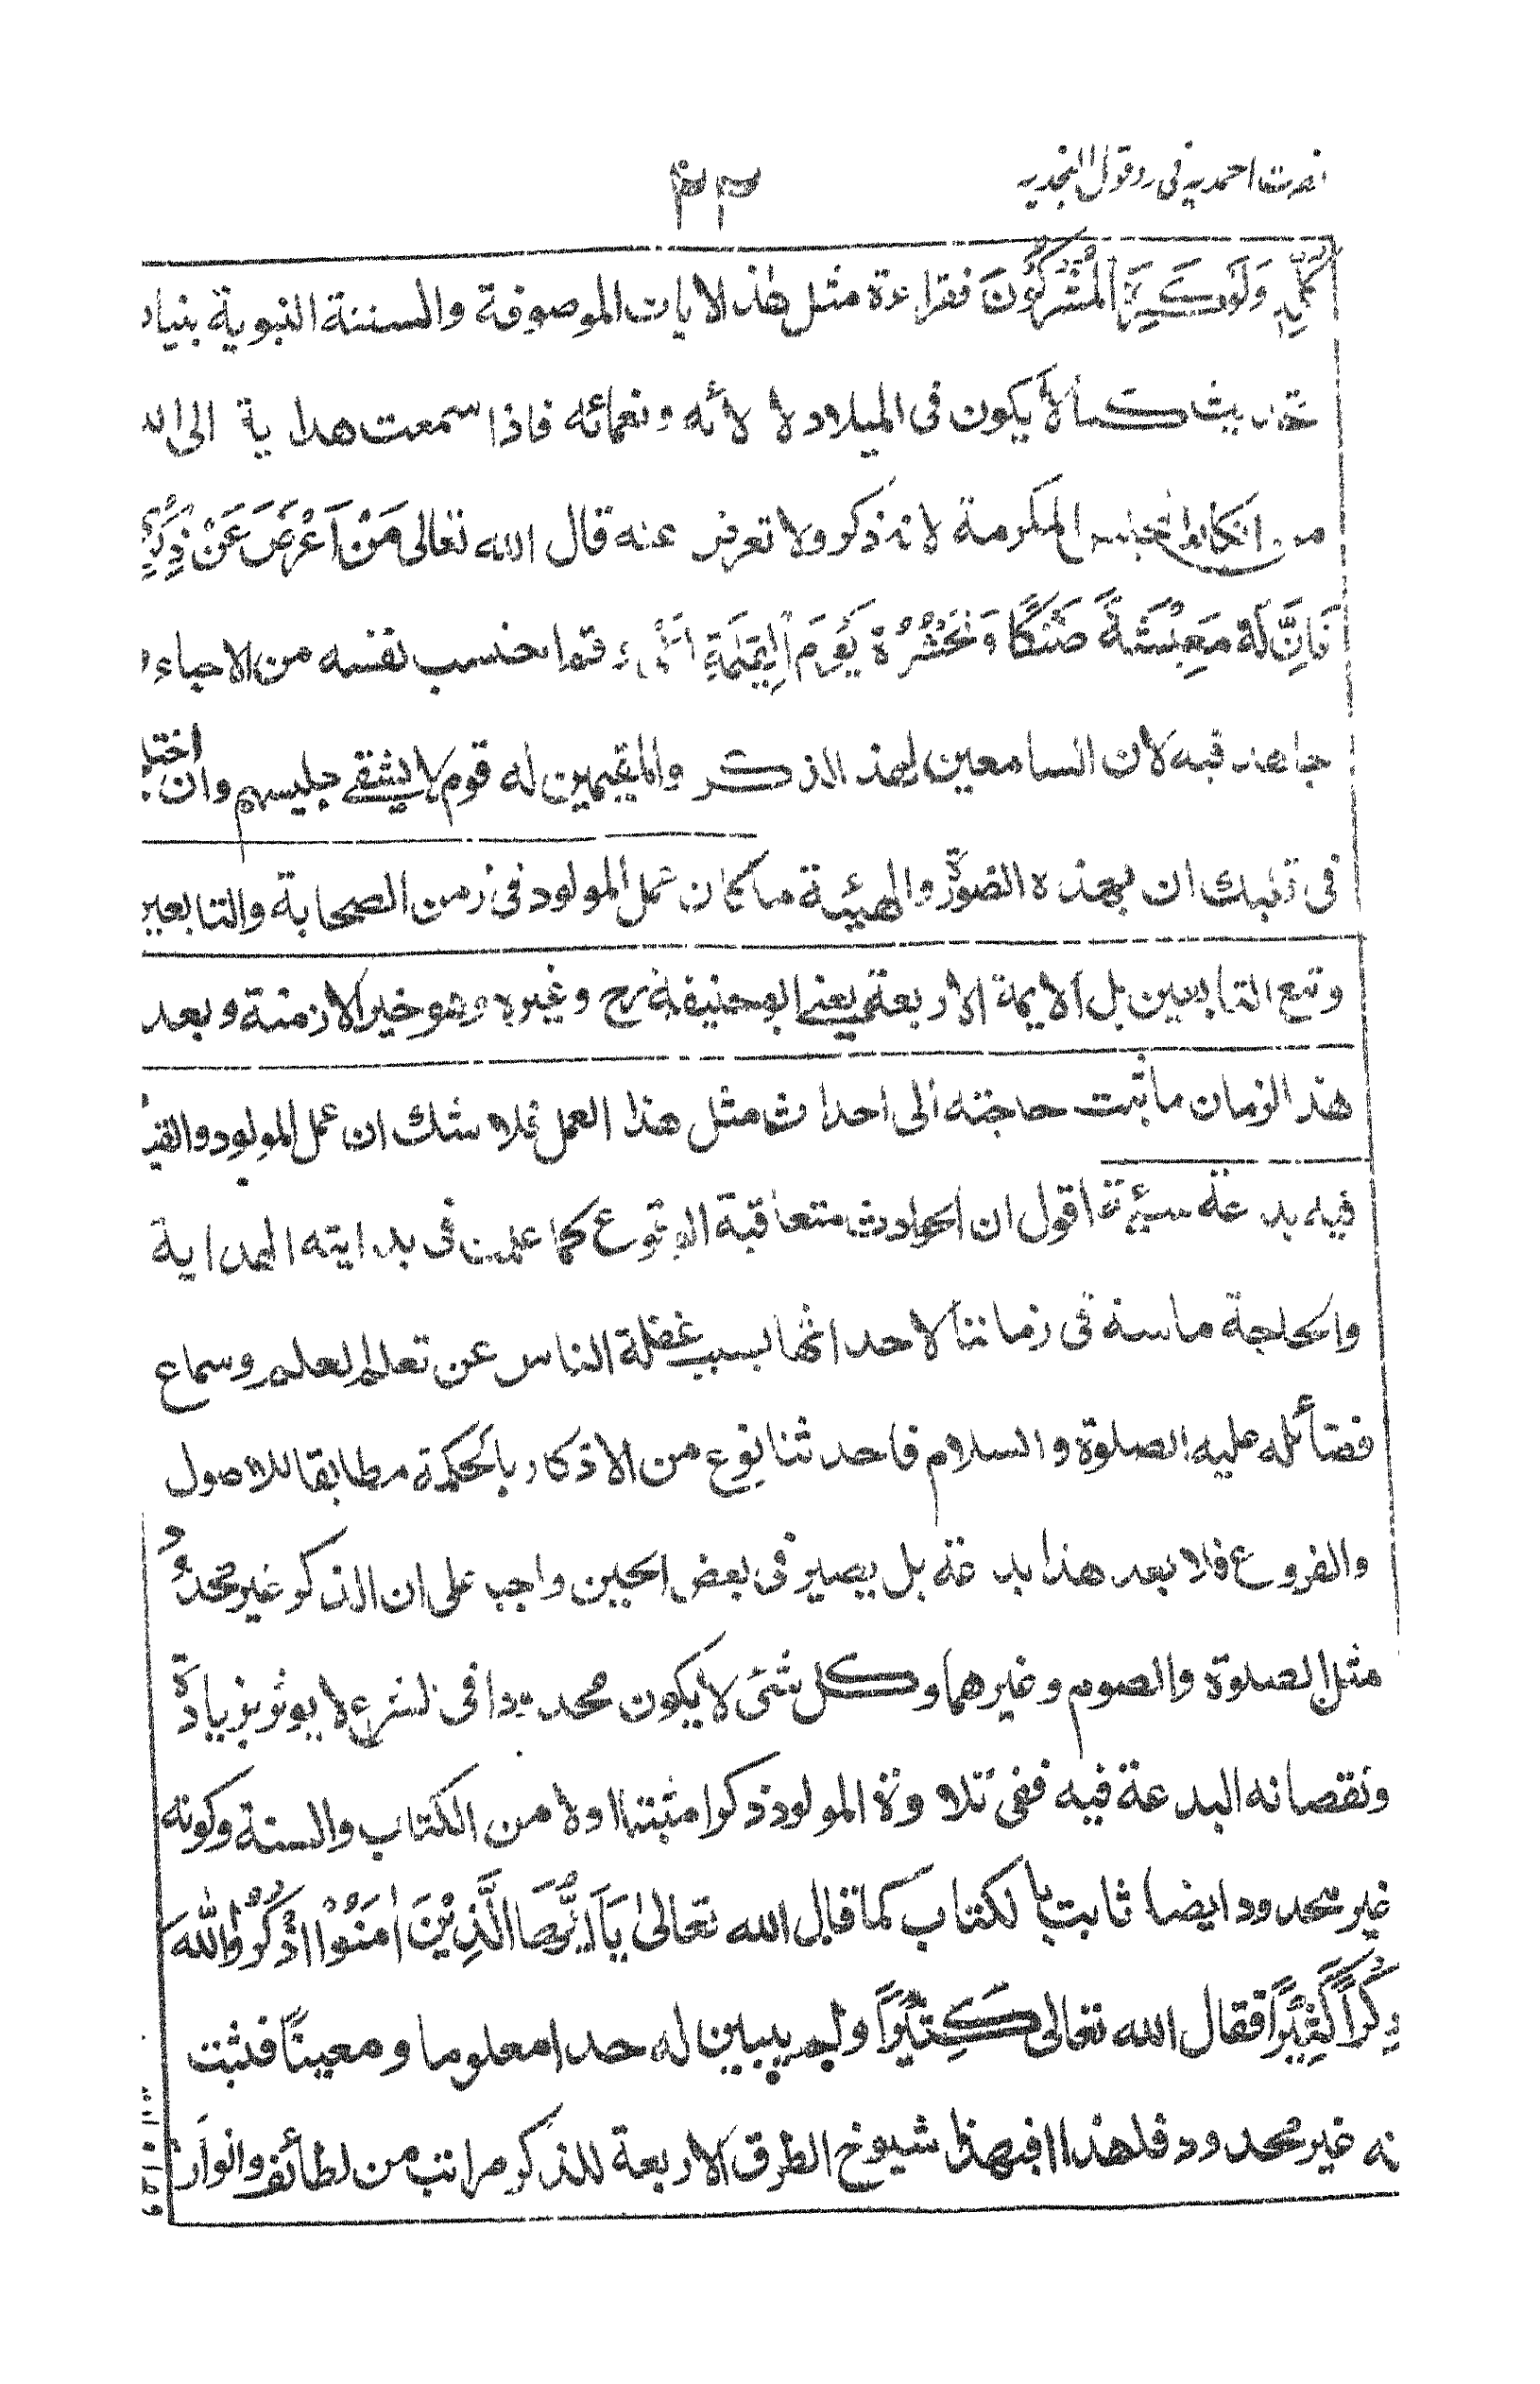 نصرت احمدیہ فی رد قول النجدیہ
كُلِّهٖ وَلَوْكَرِهَ الْمُشْرِكُوْنَ فقراءة مثل هٰذ الايات الموصوفة والسننة النبوية بنياد
تحديث كما لا يكون فى الميلاد لا لأنه ونعمائه فاذا سمعت هداية الى الله
من المكرمة لا تذكر ولا تعرض عنه قال الله تعالى مَنْ اَعْرَضَ عَنْ ذِكْرِيْ
فَاِنَّ لَهٗ مَعِيْشَةً ضَنْكًا وَنَحْشُرُهٗ يَوْمَ الْقِيٰمَةِ نفسه من الاحياء
جاهد قبه لان السامعين لهذ الذكر والمقيمين له قوم لا يشقى جليسهم وان اختيار
فى قلبك ان بهذه الصورة والهيئية ما كان عمل المولود فى زمن الصحابة والتابعين
وتبع التابعين بل الايمة الاربعة يعنى ابوحنيفة رح وغيره وهو خير الازمنة وبعد
هذ الزمان ما ثبت حاجته الى احداث مثل هذا العمل فلا شك ان عمل المولود والقيام
فيه بدعة سيئة اقول ان الحوادث متعاقبة الوقوع كما علمت فى بدايته الهداية
والحاجة ماسة فى زماننا لاحداثها لسبب غفلة الناس عن تعلم العلم وسماع
فضائله عليه الصلوة والسلام فاحدثنا نوع من الاذكار بالحكمة مطابقا للاصول
والفروع فلا بعد هذا بدعة بل يصير فى بعض الحين واجب على ان الذكر غير محدود
مثل الصلوة والصوم وغيرهما وكل شئ لا يكون محدودا فى لشرع لا يوثر بزيادة
ونقصانه البدعة فيه ففى تلاوة المولود ذكرا مثبتا اولا من الكتاب والسنة وكونه
غير محدود ايضا ثابت بالكتاب كما قال الله تعالىٰ يَاَ ايُّهَا الَّذِيْنَ اٰمَنُوْا اذْكُرُوا اللّٰهَ
ذِكْرًا كَثِيْرًا فقال الله تعالى كَثِيْرًا ولم يبين له حدا معلوما ومعينًا فثبت
نه غير محدود فلهذا شيوخ الطرق الاربعة للذكر مراتب من لطائف وانوار